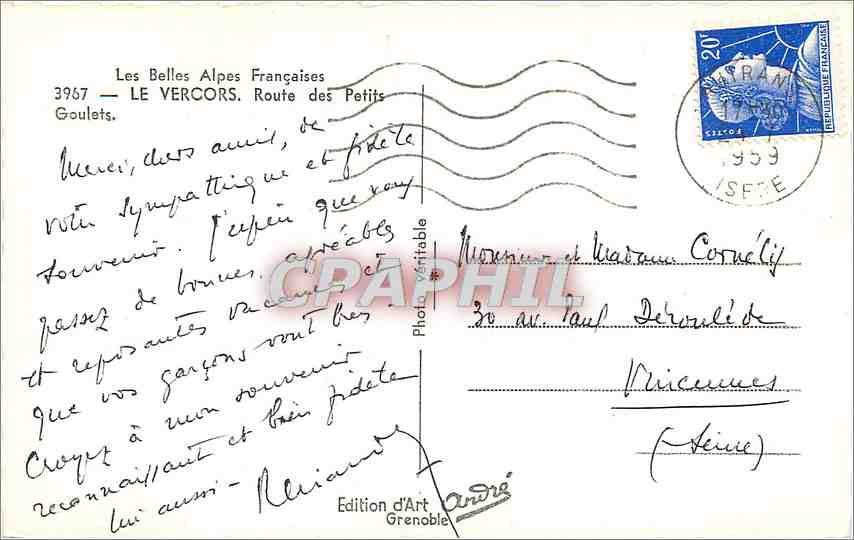 Les Belles Alpes Françaises
3967 — LE VERCORS. Route des Petits
Goulets.
Merci, chers amis, de
votre sympathique et fidèle
souvenir. J'espère que vous
passez de bonnes, agréables
et reposantes vacances et
que vos garçons vont bien.
Croyez à mon souvenir
reconnaissant et bien fidèle
lui aussi -
Photo véritable
*
Edition d'Art
Grenoble
André
20F
POSTES
REPUBLIQUE FRANÇAISE
1959
ISERE
Monsieur et Madame Cornélis
30 av. Paul Déroulède
Vincennes
(Seine)
CPAPHIL